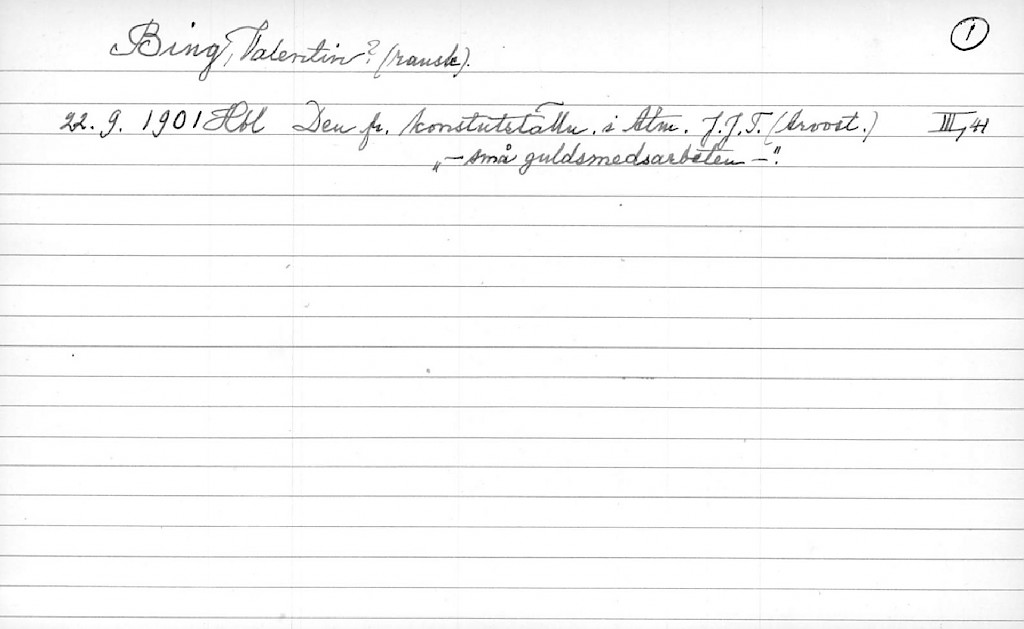 ①
Bing, Valentin? (ransk).
22. 9. 1901 Hbl Den fr. konstutställn. i Atm. J.J.T. (Arvost.) III, 41
„— små guldsmedsarbeten —".